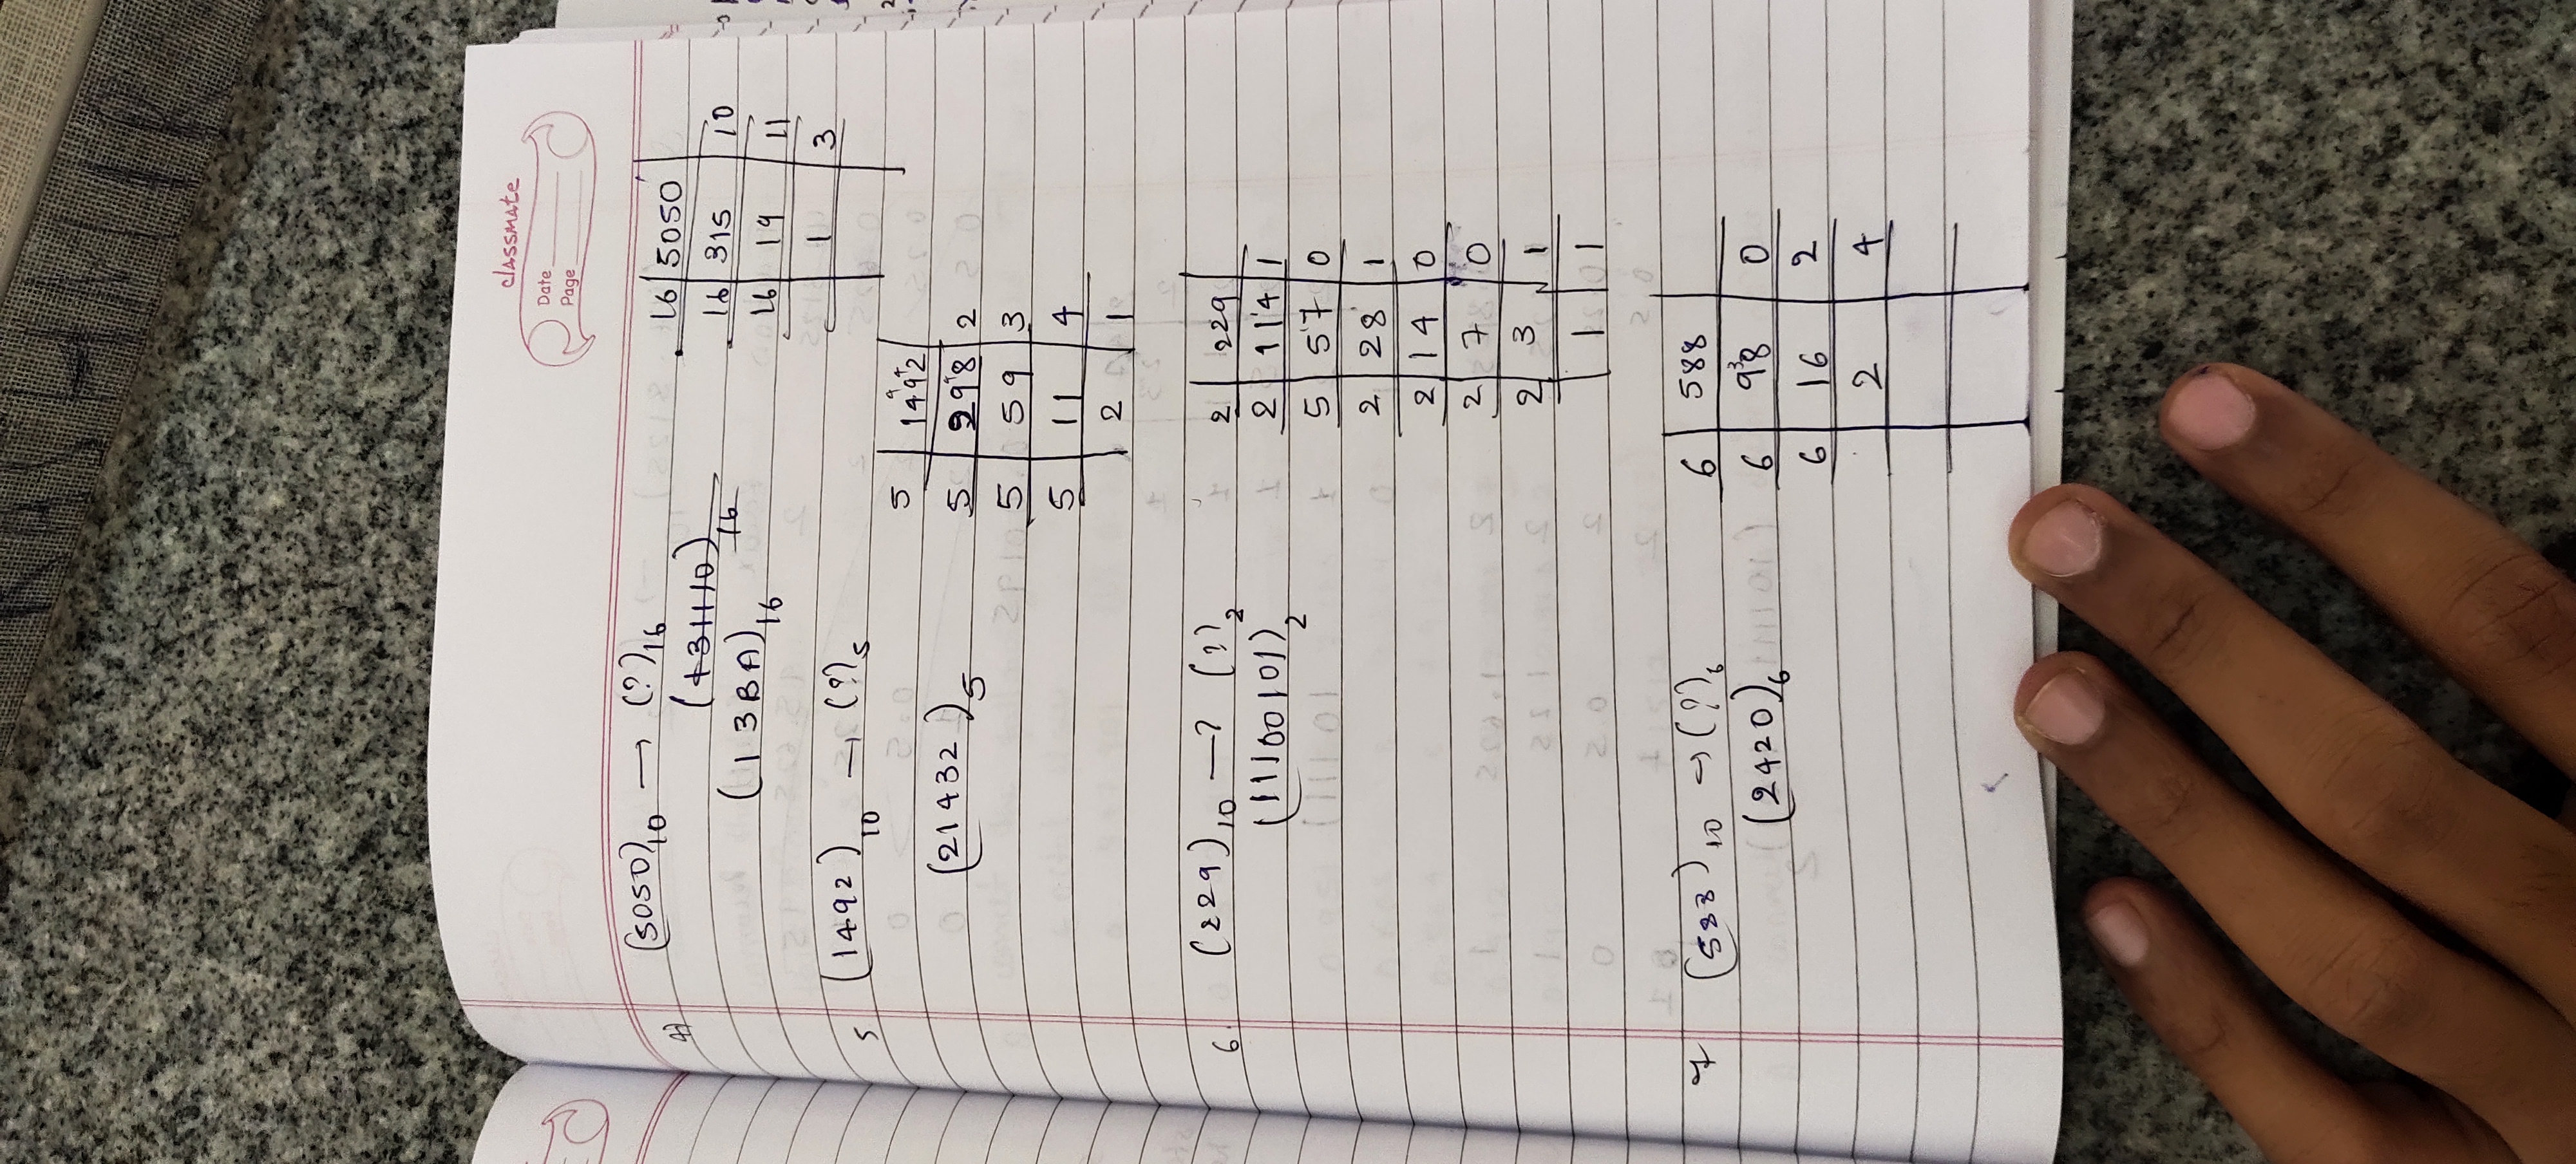 RASHTR
classmate
Date
Page
4) (5050)10 → (?)16
(131110)16
(13BA)16
16 5050
16 315 10
16 19 11
1 3
5 (1492)10 → (?)5
(21432)5
5 1492
5 298 2
5 59 3
5 11 4
2 1
6. (229)10 → (?)2
(11100101)2
2 229
2 114 1
5 57 0
2 28 1
2 14 0
2 7 0
2 3 1
1 1
7 (588)10 → (?)6
(2420)6
6 588
6 98 0
6 16 2
2 4